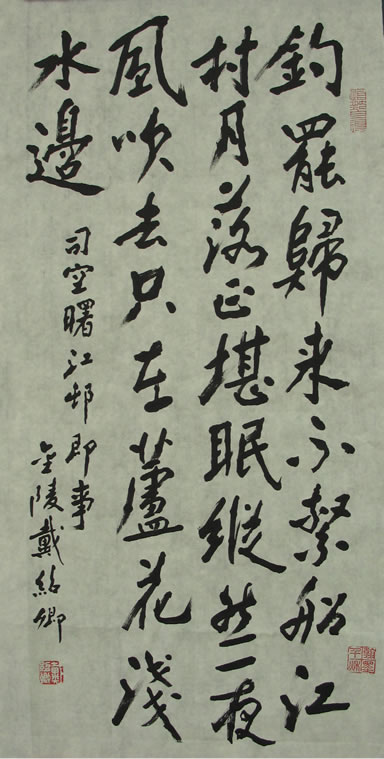 釣罷歸来不繫船江
村月落正堪眠縱然一夜
風吹去只在蘆花淺
水邊
司空曙江邨即事
金陵戴紹卿